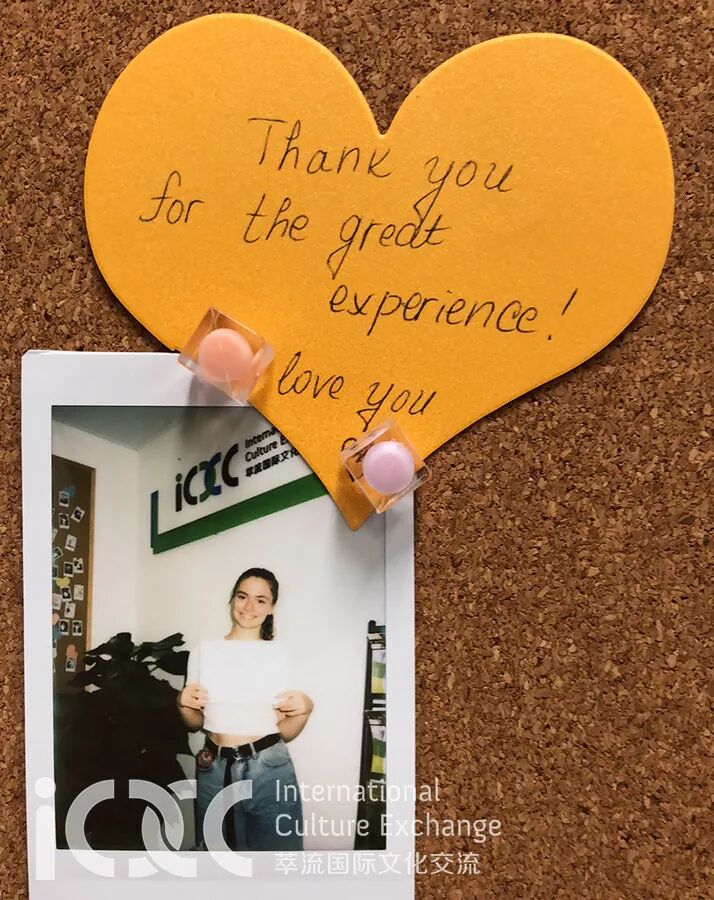 Thank you
for the great
experience!
love you
iCXC
Interna
Culture Ex
萃流国际文
iCXC
International
Culture Exchange
萃流国际文化交流